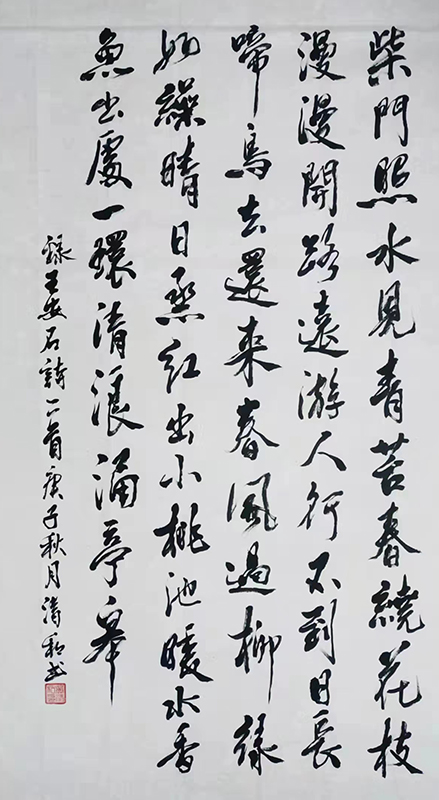 柴門照水見青苔春繞花枝
漫漫開路遠游人行不到日長
啼鳥去還來春風過柳綠
如繰晴日烝紅出小桃池暖水香
魚出處一環清浪涌亭皋
錄王安石詩二首庚子秋月書